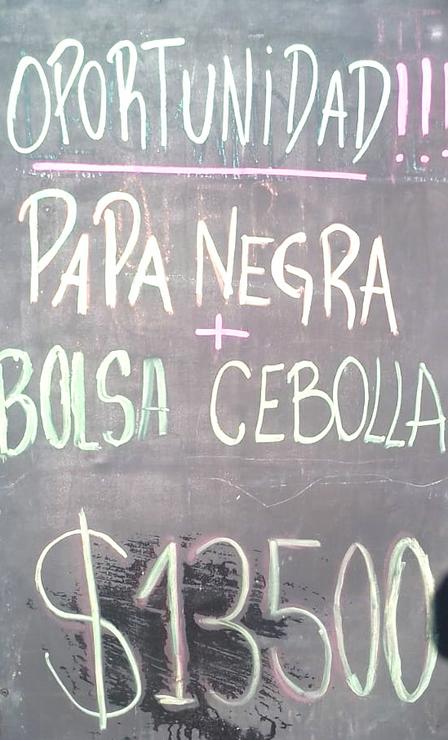 OPORTUNiDAD!!!
PAPA NEGRA
+
BOLSA CEBOLLA
$13500